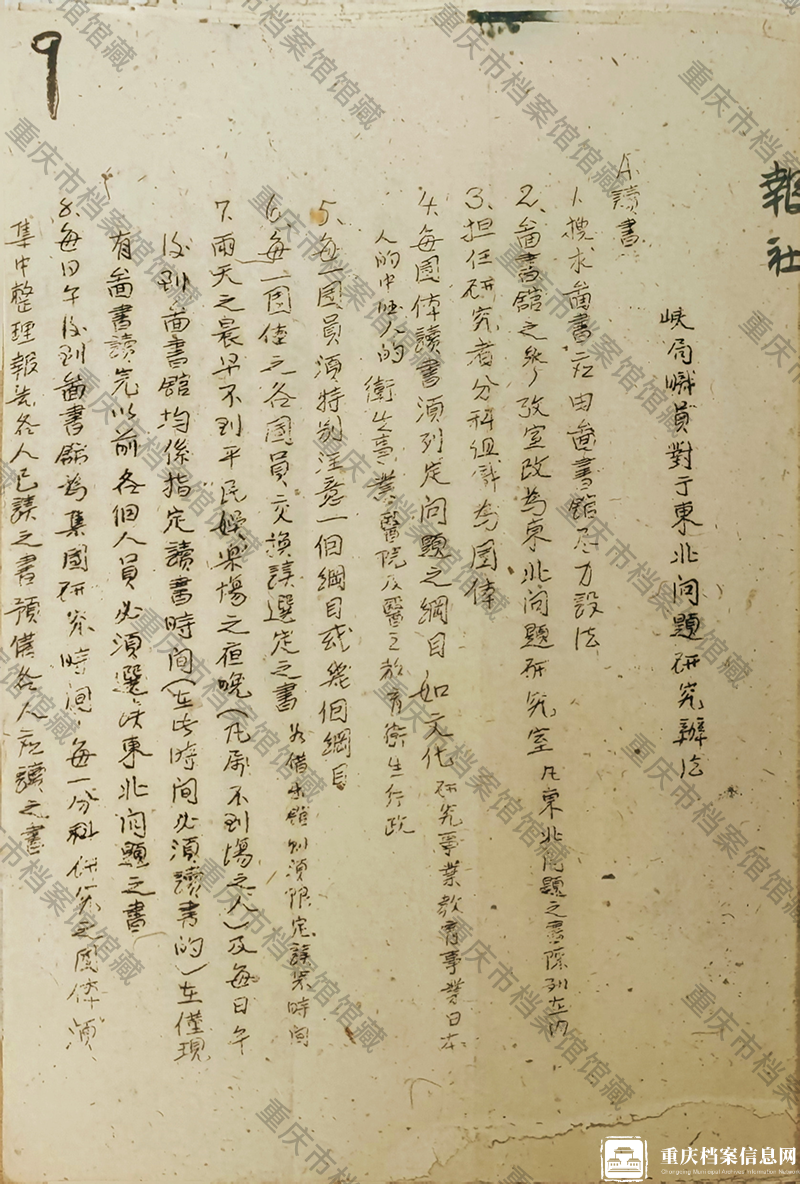 報社
9
峽局職員對于東北问題研究辦法
A.讀書
1.搜求啚書應由啚書舘尽力設法
2、啚書舘之 改為東北问題研究室凡東北问題之書陳列在内
3、担任研究者分科組織為团体
4、每团体讀書須列定问題之綱目如文化研究事業教育事業日本
人的中國人的衛生事業醫院及醫工教育衛生行政
5、每一团員須特别注意一個綱目或幾個綱目
6、每一团体之各团員交換讀選定之書如借出舘则須限定讀畢時间
7、雨天之晨早不到平民娱楽場之夜晚(凡屬不到場之人)及每日午
後到啚書舘均係指定讀書時间(在此時间必須讀書的)在僅現
有啚書讀完以前各個人員必須選讀東北问題之書
8、每日午後到啚書舘為集团研究時间,每一分科研究之团体須
集中整理報告各人已讀之書預備各人應讀之書
重庆市档案馆馆藏
重庆档案信息网
Chongqing Municipal Archives Information Network